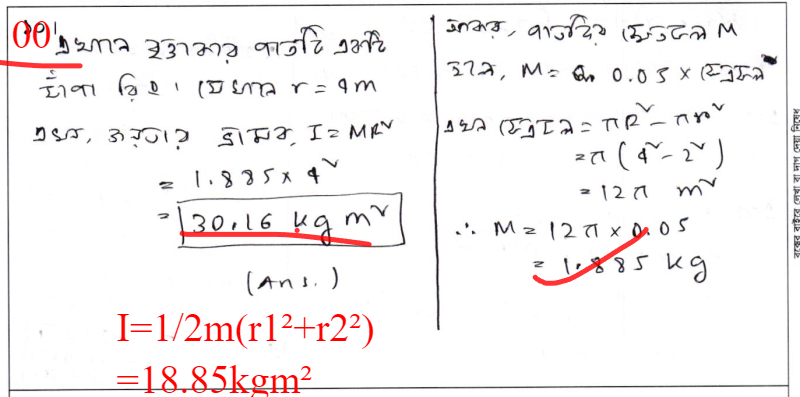 00
এখানে বৃত্তাকার পাতটি একটি
ফাঁপা রিং। যেখানে r = 4m
এখন, জড়তার ভ্রামক, I = MR²
= 1.885 × 4²
= 30.16 kg m²
(Ans.)
I=1/2m(r1²+r2²)
=18.85kgm²
পাতটির ক্ষেত্রফল M
হলে, M = 0.05 × ক্ষেত্রফল
এখন ক্ষেত্রফল = πR² - πr²
= π (4² - 2²)
= 12π m²
∴ M = 12π × 0.05
= 1.885 kg
বক্সের বাইরে লেখা বা দাগ দেয়া নিষেধ